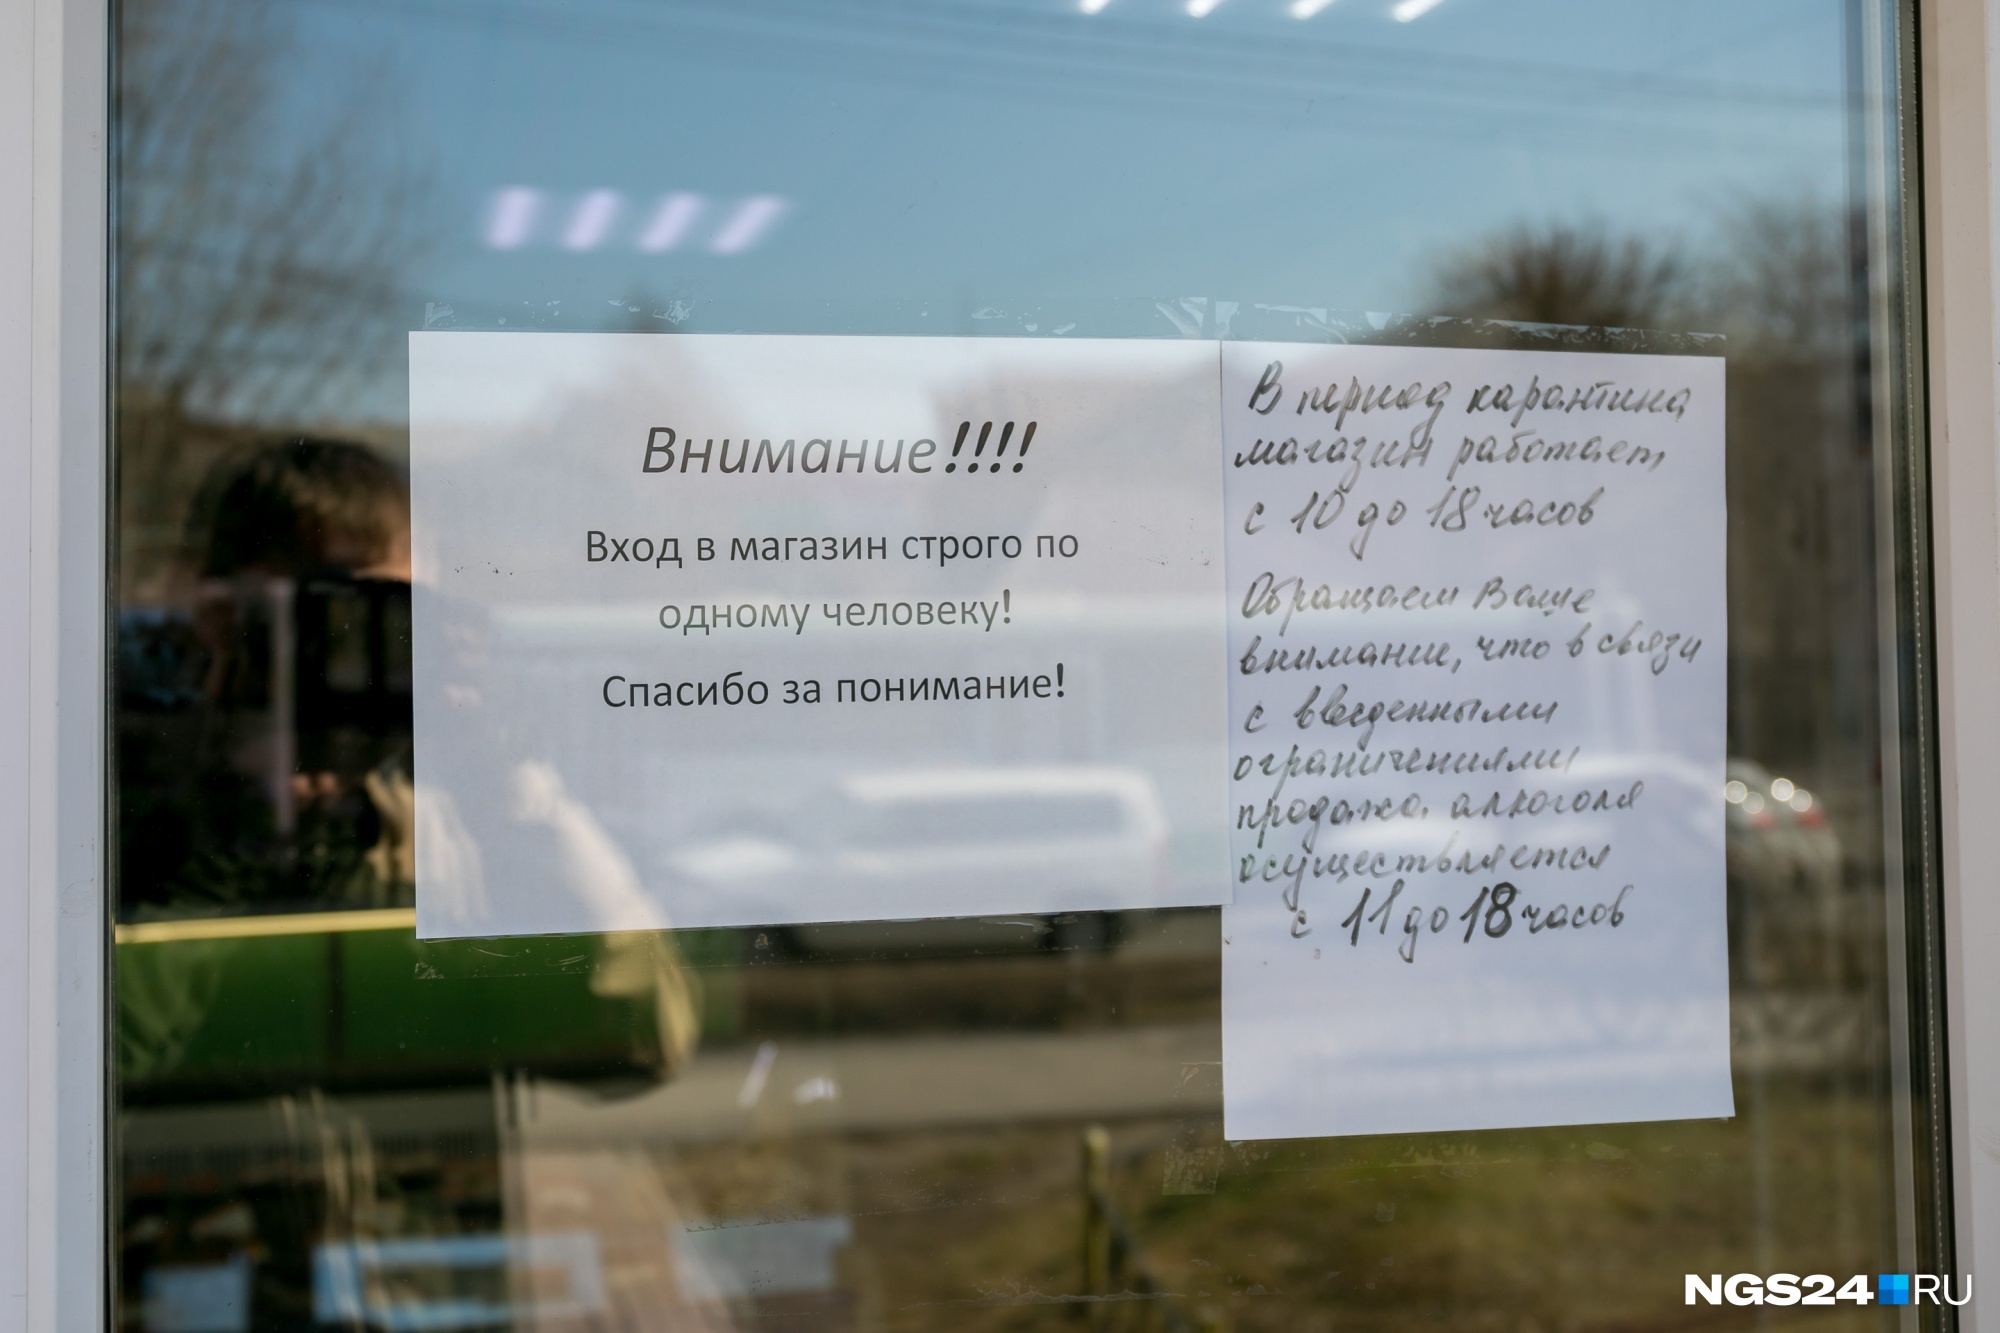 Внимание!!!!
Вход в магазин строго по
одному человеку!
Спасибо за понимание!
В период карантина
магазин работает
с 10 до 18 часов
Обращаем Ваше
внимание, что в связи
с введенными
ограничениями
продажа алкоголя
осуществляется
с 11 до 18 часов
NGS24 RU